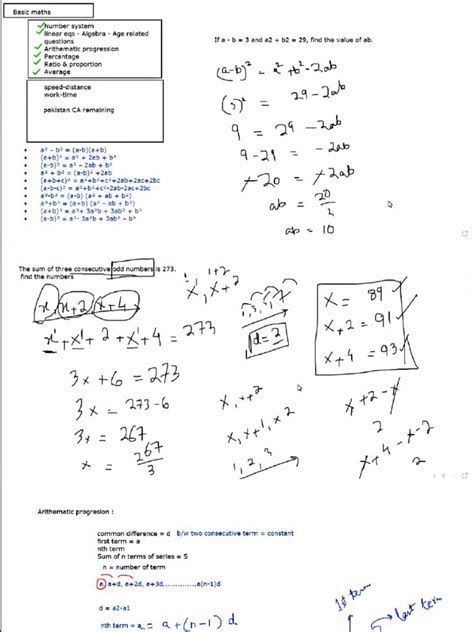 Basic maths
Number system
linear eqs - Algebra - Age related
questions
Arithematic progression
Percentage
Ratio & proportion
Average
speed-distance
work-time
pakistan CA remaining
If a - b = 3 and a2 + b2 = 29, find the value of ab.
(a-b)² = a² + b² - 2ab
(3)² = 29 - 2ab
9 = 29 - 2ab
9 - 29 = - 2ab
-20 = -2ab
ab = 20/2
ab = 10
a² - b² = (a-b)(a+b)
(a+b)² = a² + 2ab + b²
(a-b)² = a² - 2ab + b²
a² + b² = (a-b)² +2ab
(a+b+c)² = a²+b²+c²+2ab+2ac+2bc
(a-b-c)² = a²+b²+c²-2ab-2ac+2bc
a³-b³ = (a-b) (a² + ab + b²)
a³+b³ = (a+b) (a² - ab + b²)
(a+b)³ = a³+ 3a²b + 3ab² + b³
(a-b)³ = a³- 3a²b + 3ab² - b³
The sum of three consecutive odd numbers is 273.
find the numbers
x, x+2, x+4
x + x + 2 + x + 4 = 273
3x + 6 = 273
3x = 273-6
3x = 267
x = 267/3
d = 2
x, x+2
x, x+1, x2
1, 2, 3
x = 89
x+2 = 91
x+4 = 93
x+2-x
2
x+4-x-2
2
Arithmatic progresion :
common difference = d b/w two consecutive term = constant
first term = a
nth term
Sum of n terms of series = S
n = number of term
a, a+d, a+2d, a+3d,.............,a(n-1)d
d = a2-a1
nth term = aₙ = a + (n-1) d
1st term
last term